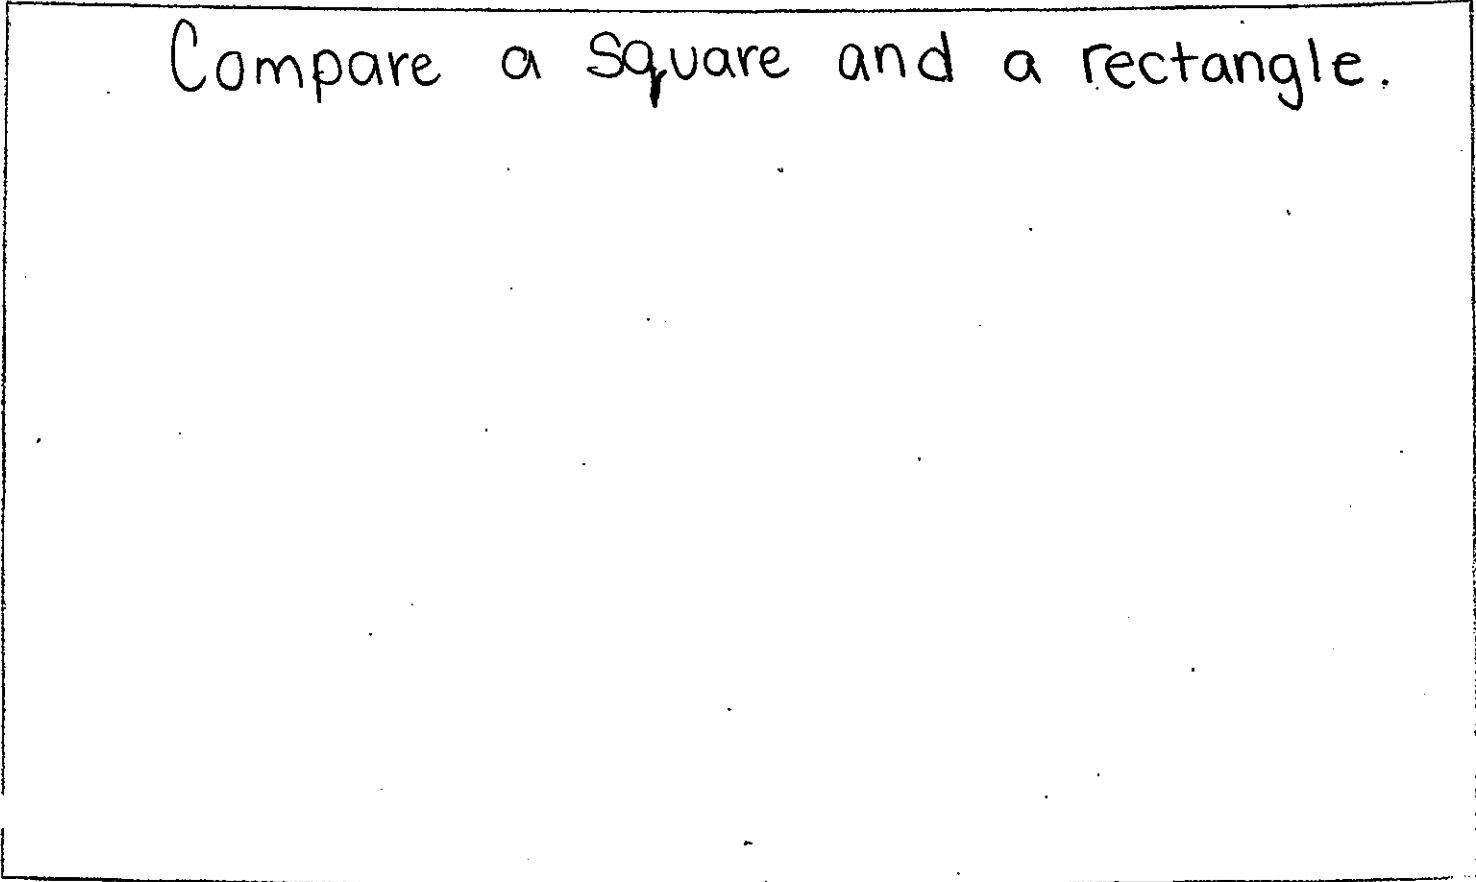 Compare a square and a rectangle.